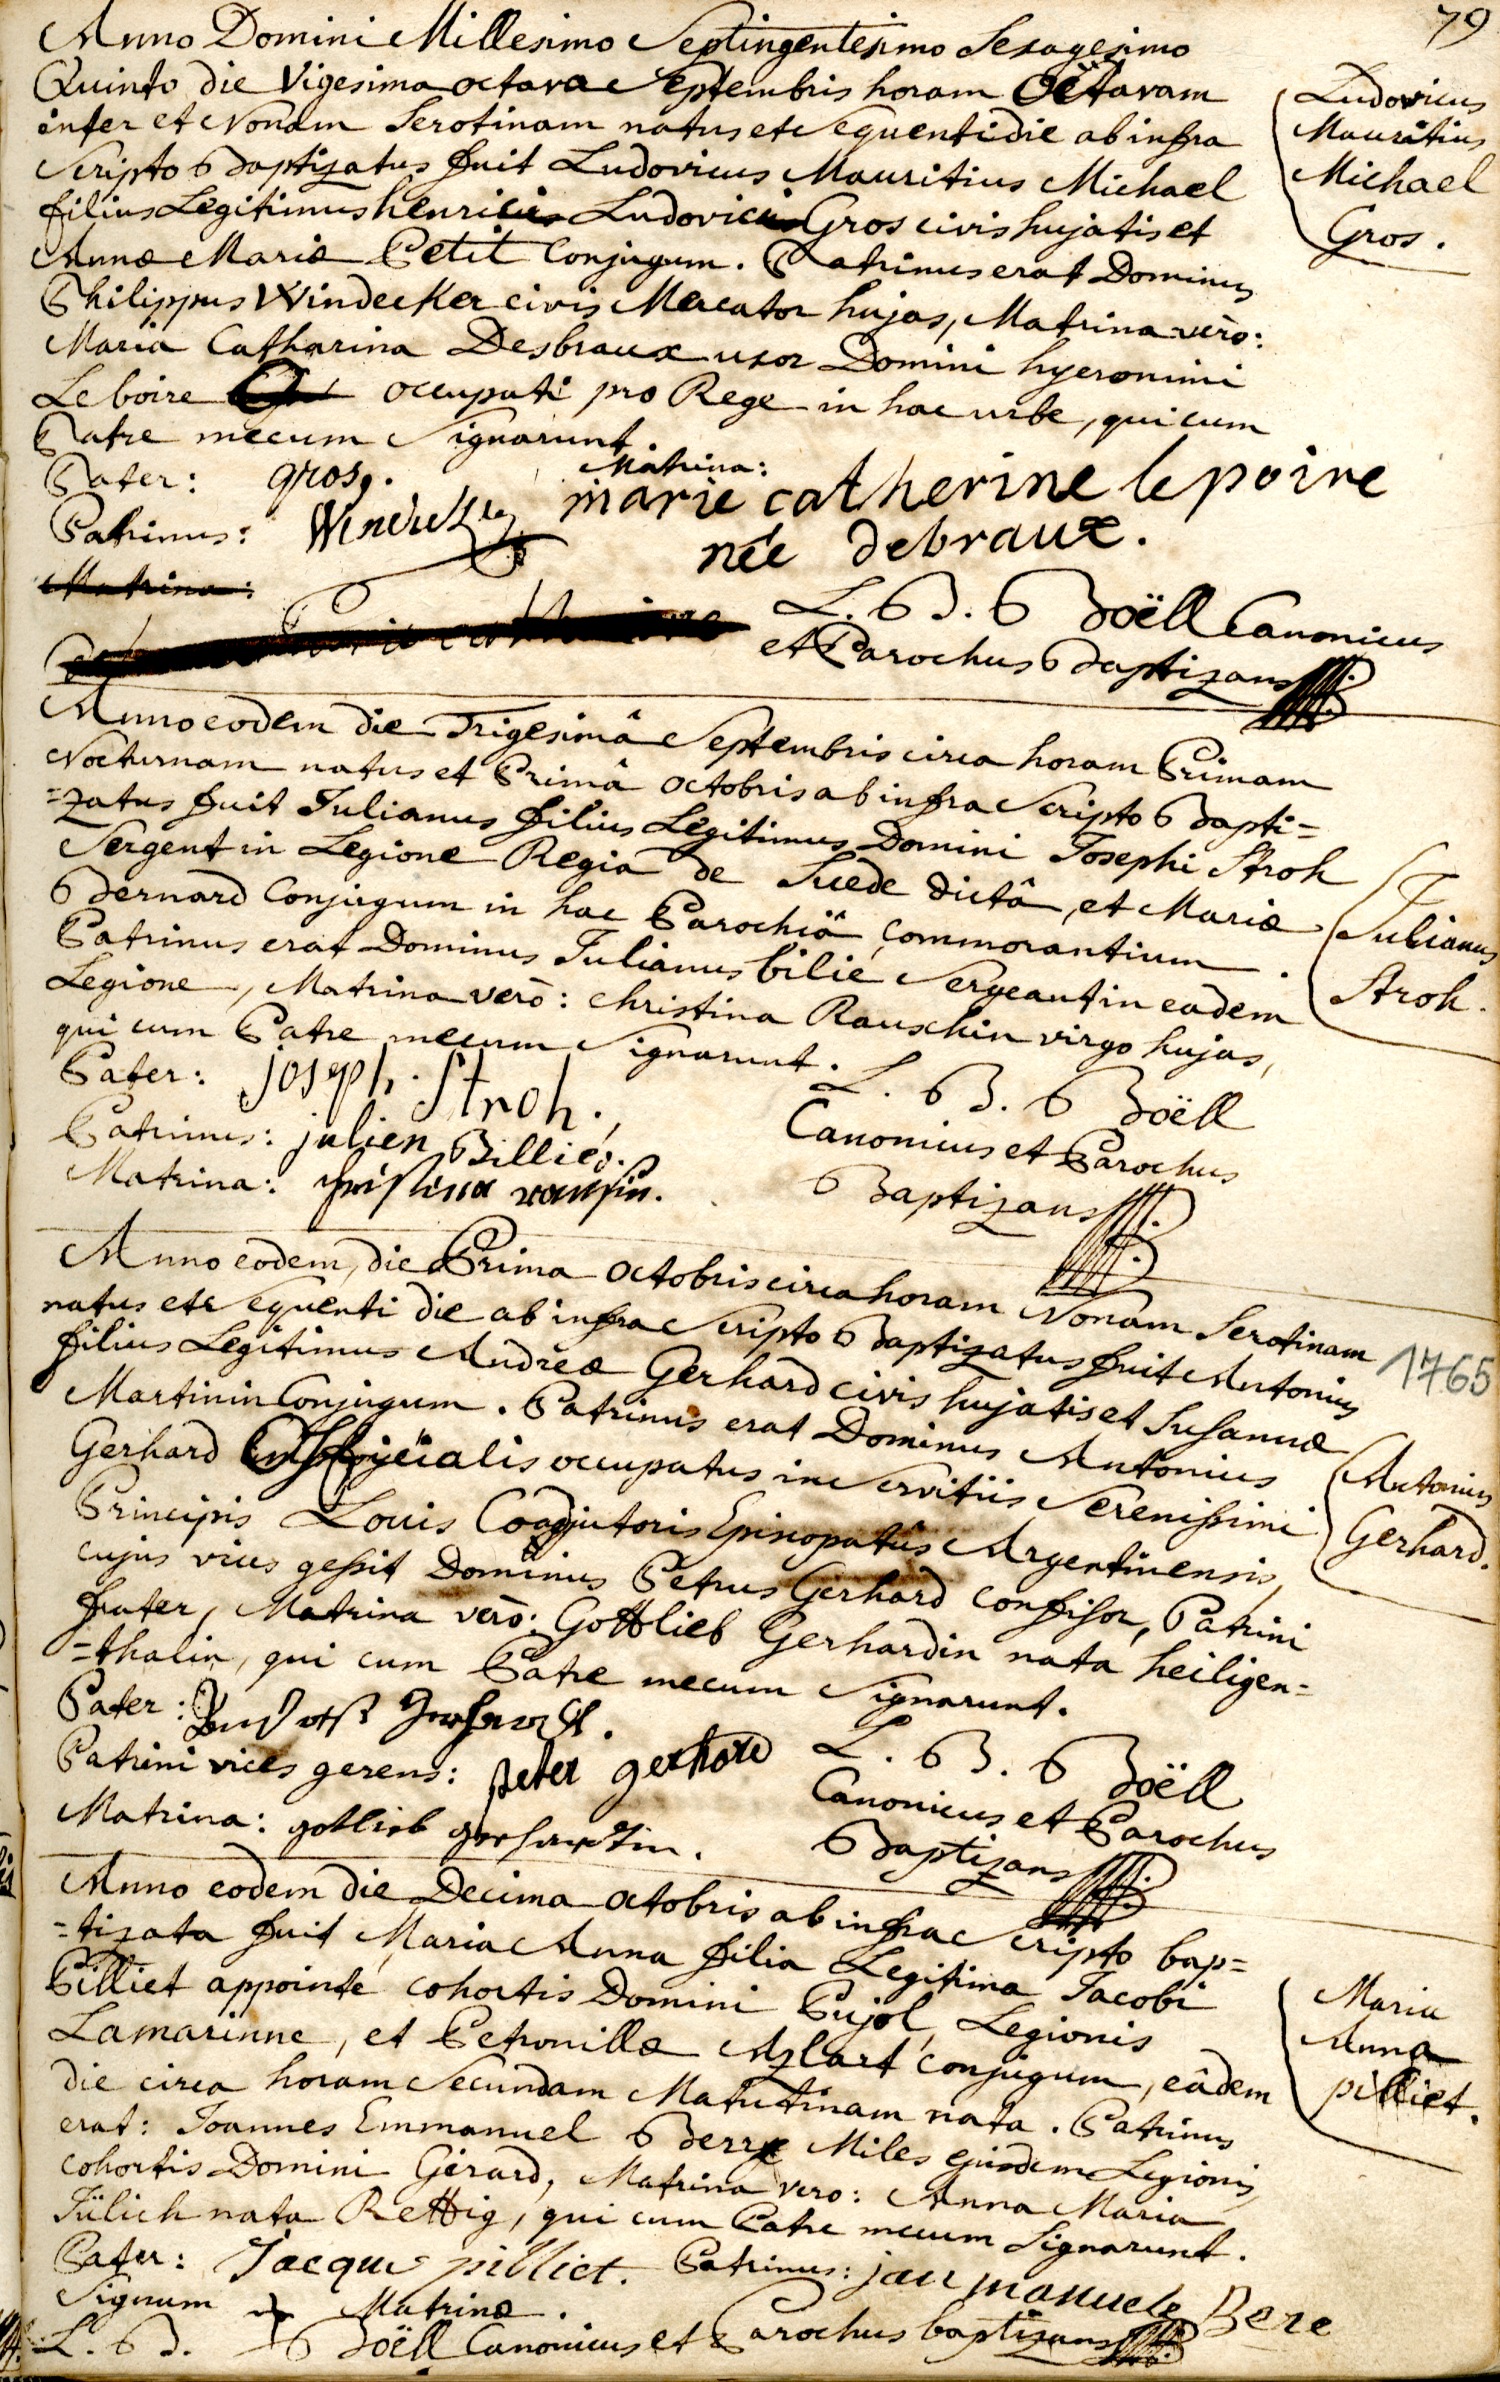 79
Anno Domini Millesimo Septingentesimo Sexagesimo
Quinto die Vigesima octava Septembris horam Octavam
inter et Nonam Serotinam natus et sequenti die ab infra
Scripto Baptizatus fuit Ludovicus Mauritius Michael
filius Legitimus henrici Ludovici Gros civis hujatis et
Annæ Mariæ Petit Conjugum. Patrinus erat Dominus
Philippus Windecker civis Mercator hujas, Matrina verò:
Maria Catharina Desbraux uxor Domini hyeronimi
Leboire occupati pro Rege in hac urbe, qui cum
Patre mecum Signarunt.
Ludovicus
Mauritius
Michael
Gros.
Pater: gros.
Patrinus: Windecker
Matrina:
marie catherine lepoire
née debraux.
Matrina:
L. B. Boëll Canonicus
et Parochus Baptizans
Anno eodem die Trigesimâ Septembris circa horam Primam
Nocturnam natus et Primâ octobris ab infra Scripto Bapti=
=zatus fuit Julianus filius Legitimus Domini Josephi Stroh
Sergent in Legione Regia de Suede dictâ, et Mariæ
Bernard Conjugum in hac Parochiâ commorantium.
Patrinus erat Dominus Julianus bilié Sergeant in eadem
Legione, Matrina verò: Christina Rauschin virgo hujas,
qui cum Patre mecum Signarunt.
Julianus
Stroh.
Pater: joseph. Stroh.
Patrinus: julien Billié.
Matrina: christina rausin.
L. B. Boëll
Canonicus et Parochus
Baptizans
Anno eodem, die Prima octobris circa horam Nonam Serotinam
natus et sequenti die ab infra Scripto Baptizatus fuit Antonius
filius Legitimus Andreæ Gerhard civis hujatis et Susannæ
Martinin Conjugum. Patrinus erat Dominus Antonius
Gerhard officialis occupatus in Servitiis Serenissimi
Principis Louis Coadjutoris Episcopatûs Argentinensis,
cujus vices gessit Dominus Petrus Gerhard confisor, Patrini
frater, Matrina verò: Gottlieb Gerhardin nata heiligen=
=thalin, qui cum Patre mecum Signarunt.
1765
Antonius
Gerhard.
Pater: Gerhardt.
Patrini vices gerens: peter gerhard
Matrina: gottlieb gerhardtin.
L. B. Boëll
Canonicus et Parochus
Baptizans
Anno eodem die Decima octobris ab infra Scripto bap=
=tizata fuit Maria Anna filia Legitima Jacobi
Pilliet appointé cohortis Domini Pujol, Legionis
Lamarinne, et Petronillæ Azlart conjugum, eâdem
die circa horam Secundam Matutinam nata. Patrinus
erat: Joannes Emmanuel Berre Miles ejusdem Legionis,
cohortis Domini Gérard, Matrina vero: Anna Maria
Jülich nata Rettig, qui cum Patre mecum Signarunt.
Maria
Anna
pilliet.
Pater: Jacque pilliet. Patrinus: jan manuele Bere
Signum Matrinæ.
L. B. Boëll Canonicus et Parochus baptizans